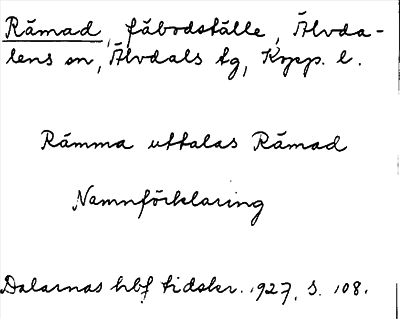 Råmad, fäbodställe, Älvda-
lens sn, Älvdals tg, Kopp. l.
Råmma uttalas Råmad
Namnförklaring
Dalarnas hbf tidskr. 1927, s. 108.